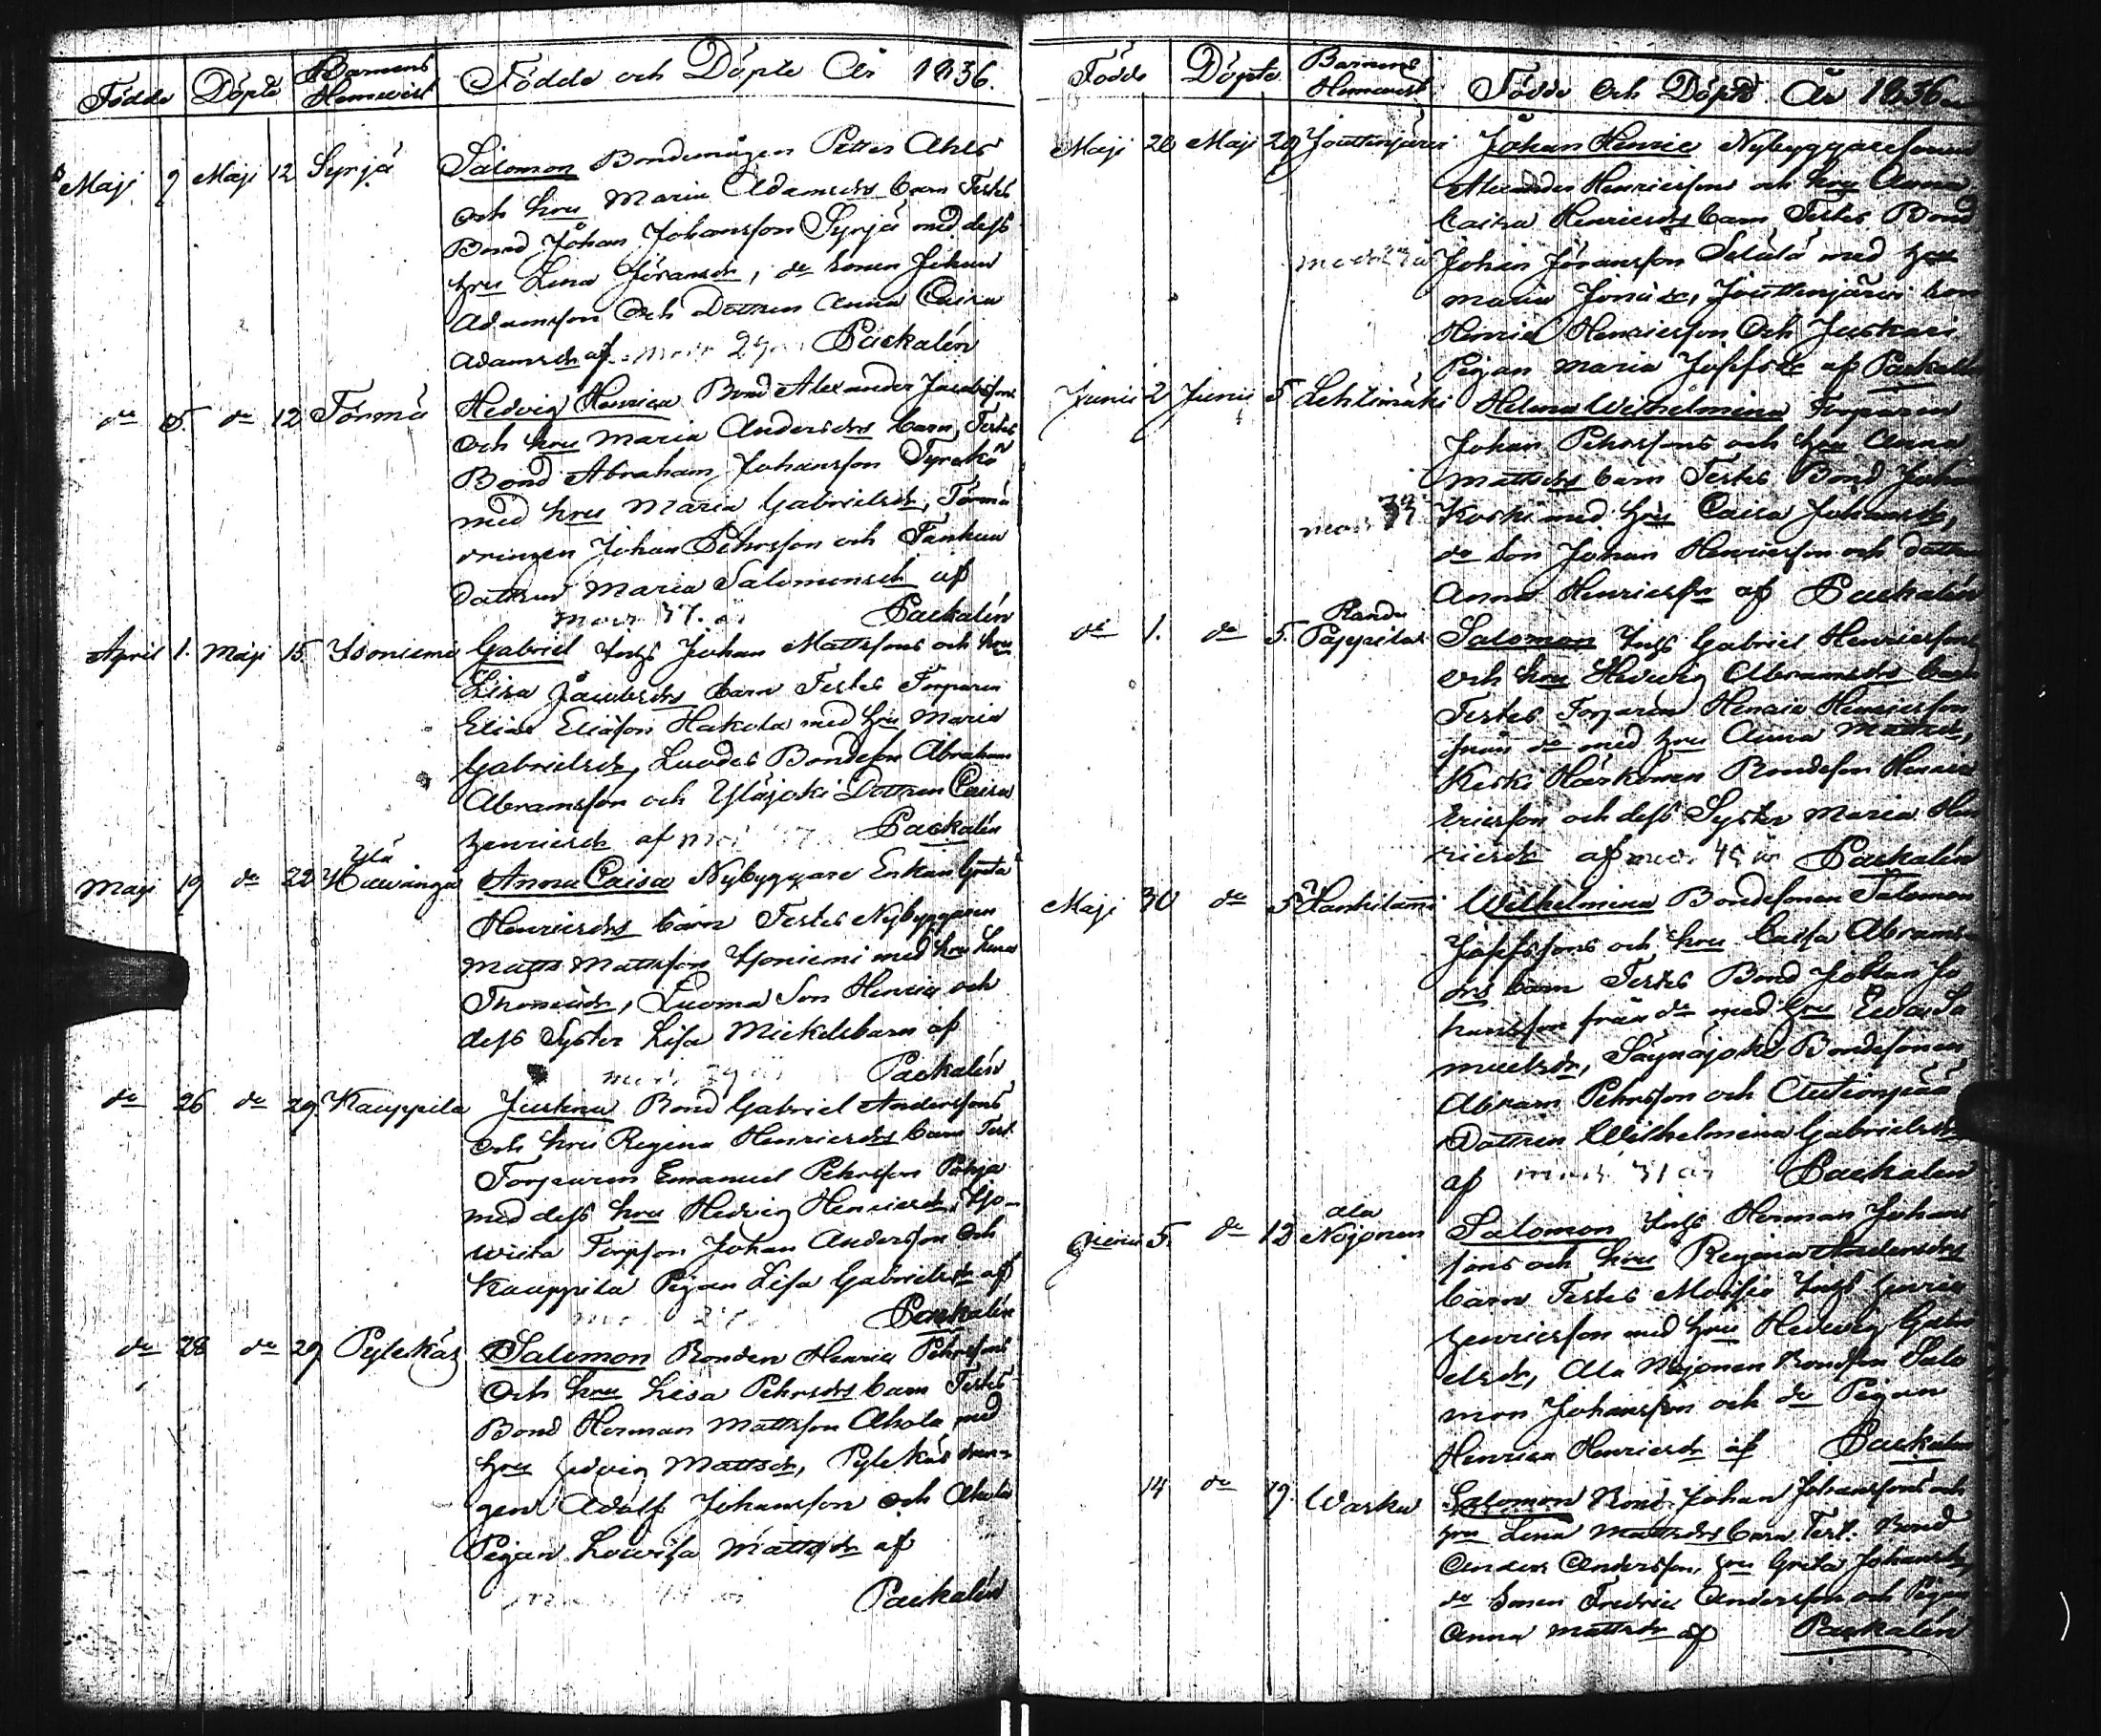 Födde Döpte Barnens Hemvist Födde och Döpte År 1836.
Maji 9 Maji 12 Syrjä Salomon Bondemågen Petter Ahls
och hru Maria Adamsdrs barn Testes
Bond Johan Johansson Syrjä med dess
hru Lena Jöransdr, do sonen Johan
Adamsson och Dottren Anna Caisa
Adamsdr af Packalén
do 5. do 12 Törmä Hedvig Henrica Bond Alexander Jacobssons
och hru Maria Andersdrs barn, Testes
Bond Abraham Johansson
med hru Maria Gabrielsdr, Törmä
drengen Johan Pehrsson och
Dottren Maria Salomonsdr af
mod. 37. år Packalén
April 1. Maji 15 Isoniemi Gabriel Inhs Johan Mattssons och hru
Lisa Jacobsdrs barn Testes Torparen
Elias Eliasson Hakola med hru Maria
Gabrielsdr, Luodes Bondeson Abraham
Abramsson och Yläjoki Dottren Caisa
Henricsdr af Packalén
Maji 19 do 22 Ylä Anna Caisa Nybyggare Enkan Greta
Henricsdrs barn Testes Nybyggaren
Matts Mattsson Isoniemi med hru Lena
Thomasdr, Luoma Son Henric och
dess Syster Lisa Mickelsbarn af
Packalén
do 26 do 29. Kauppila Justina Bond Gabriel Anderssons
och hru Regina Henricsdrs barn Test.
Torparen Emanuel Pehrsson Pohja
med dess hru Hedvig Henricsdr, Iso-
wiita Torpson Johan Andersson och
Kauppila Pigan Lisa Gabrielsdr af
Packalén
do 28 do 29 Salomon Bonden Henric Pehrssons
och hru Lisa Pehrsdrs barn Testes
Bond Herman Mattsson Ahola med
hru Hedvig Mattsdr, dren-
gen Adolf Johansson och Ahola
Pigan Lowisa Mattsdr af
Packalén
Födde Döpte Barnens Hemvist Födde och Döpte År 1836
Maji 28 Maji 29 Jouttenjärvi Johan Henric Nybyggaresonen
Alexander Henricssons och hru Anna
Caisa Henricsdrs barn Testes Bond
Johan Jöransson med hru
Maria Jonasdr, Jouttenjärvi son
Henric Henricsson och
Pigan Maria Josefsdr af Packalén
Junii 2 Junii 5 Lehtimäki Helena Wilhelmina Torparen
Johan Pehrssons och hru Anna
Mattsdrs barn Testes Bond Johan
Koski med hru Caisa Johansdr,
do son Johan Henricsson och dottren
Anna Henricsdr af Packalén
do 1. do 5. Pappilas Salomon Inhs Gabriel Henricssons
och hru Hedvig Abramsdrs barn
Testes Torparen Henric Henricsson
från do med hru Anna Mattsdr,
Keski Härkönen Bondeson Henric
Ericsson och dess Syster Maria Hen
ricsdr af Packalén
Maji 30 do 5 Hanhilammi Wilhelmina Bondesonen Salomon
Josefssons och hru Caisa Abrams-
drs barn Testes Bond Johan Jo
hansson från do med hru Ewa Sa
muelsdr, Säynäjoki Bondesonen
Abram Pehrsson och
Dottren Wilhelmina Gabrielsdr
af mod. 31 år Packalén
Junii 5. do 12 Ala Nojonen Salomon Inhs Herman Johans
sons och hru Regina Andersdrs
barn Testes Inhs Henric
Henricsson med hru Hedvig Gabri
elsdr, Ala Nojonen Bondson Salo
mon Johansson och do Pigan
Henrica Henricsdr af Packalén
14 do 19. Warka Salomon Bond Johan Johanssons och
hru Lena Mattsdrs barn Test. Bond
Anders Andersson, hru Greta Johansdr,
do Sonen Fredric Andersson och Pigan
Anna Mattsdr af Packalén